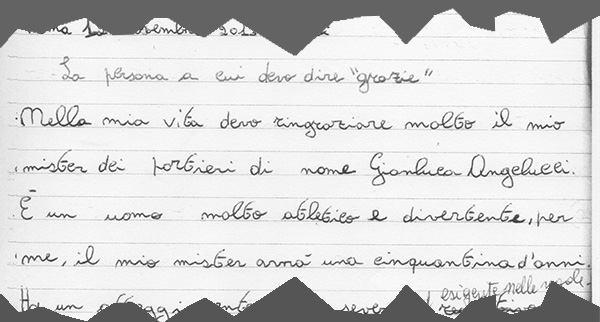 La persona a cui devo dire "grazie"
Nella mia vita devo ringraziare molto il mio
mister dei portieri di nome Gianluca Angelucci.
È un uomo molto atletico e divertente, per
me, il mio mister avrà una cinquantina d'anni.
esigente nelle
Ha un